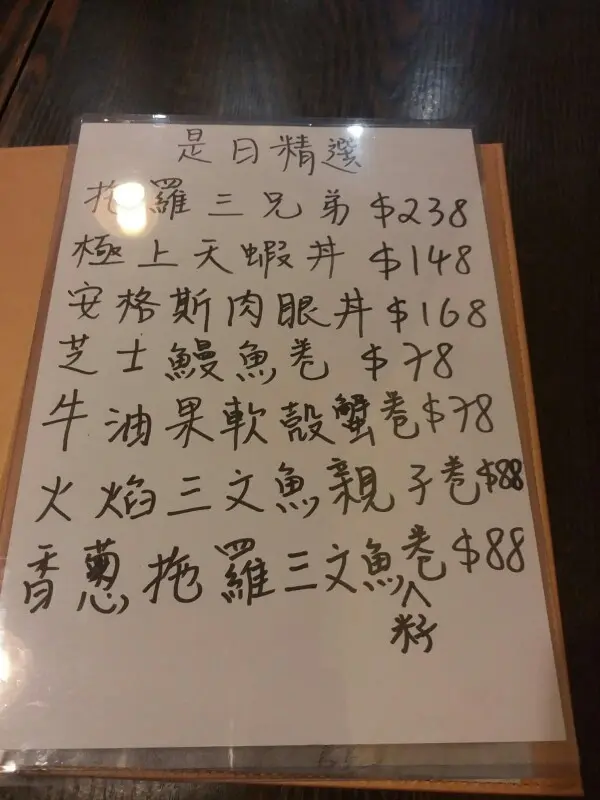 是日精選
拖羅三兄弟 $238
極上天蝦丼 $148
安格斯肉眼丼 $168
芝士鰻魚卷 $78
牛油果軟殼蟹卷 $78
火焰三文魚親子卷 $88
香蔥拖羅三文魚籽卷 $88